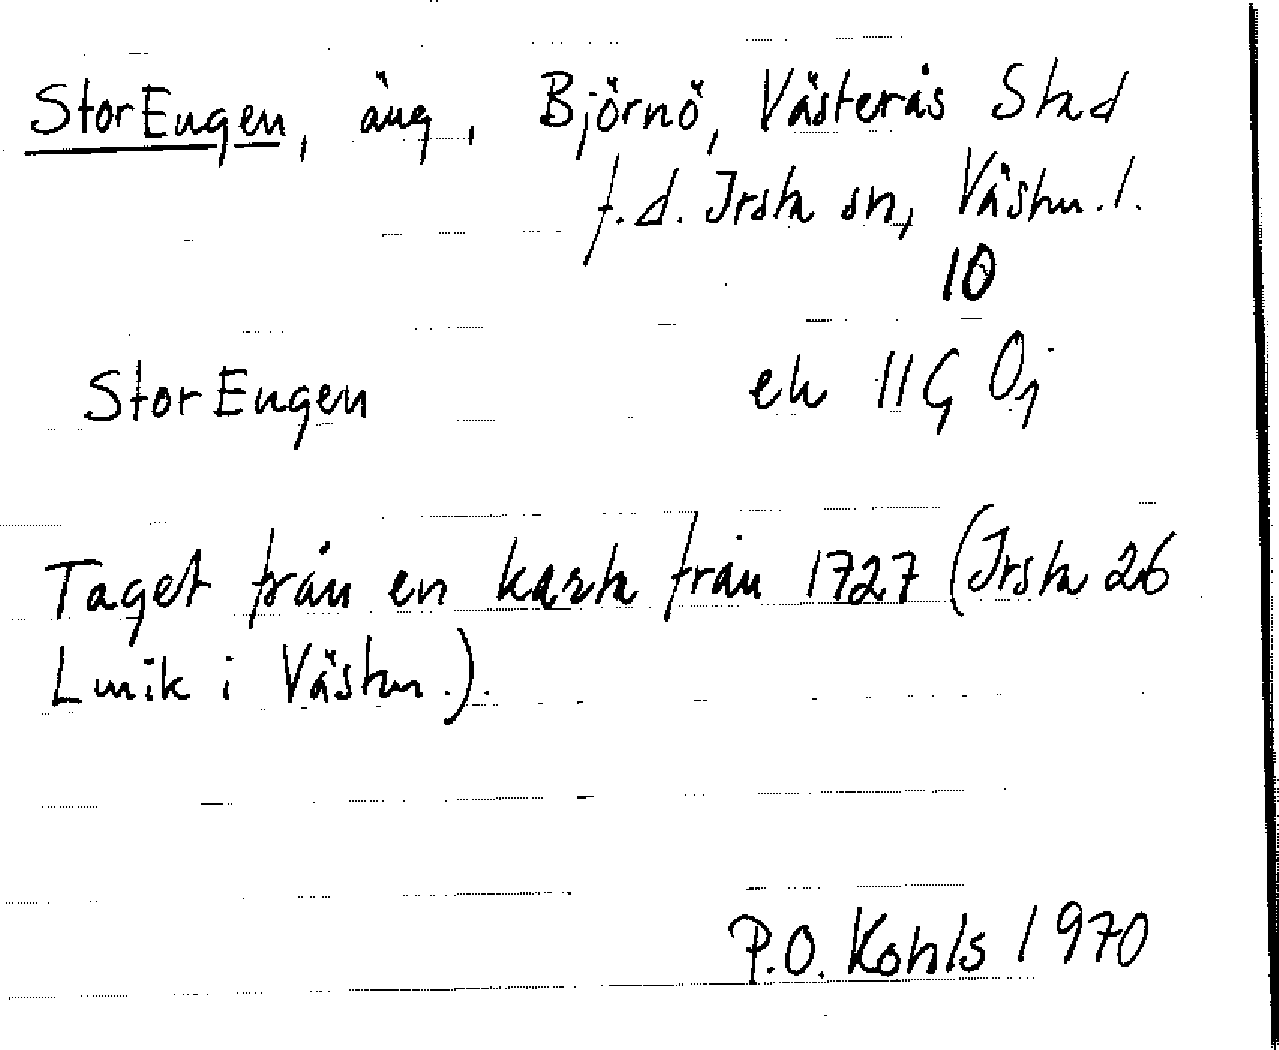 StorEngen, äng, Björnö, Västerås Stad
f.d. Irsta sn, Västm. l.
10
StorEngen ek 11G 0j
Taget från en karta från 1727 (Irsta 26
Lmik i Västm.).
P.O. Kohls 1970